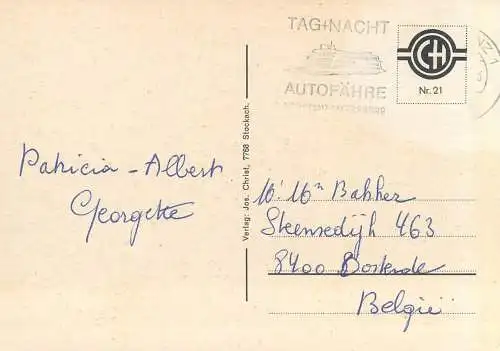 TAG+NACHT
AUTOFÄHRE
CH
Nr. 21
Patricia - Albert
Georgette
Verlag: Jos. Christ, 7768 Stockach.
Mr Mm Bakker
Steensedijk 463
8400 Oostende
België